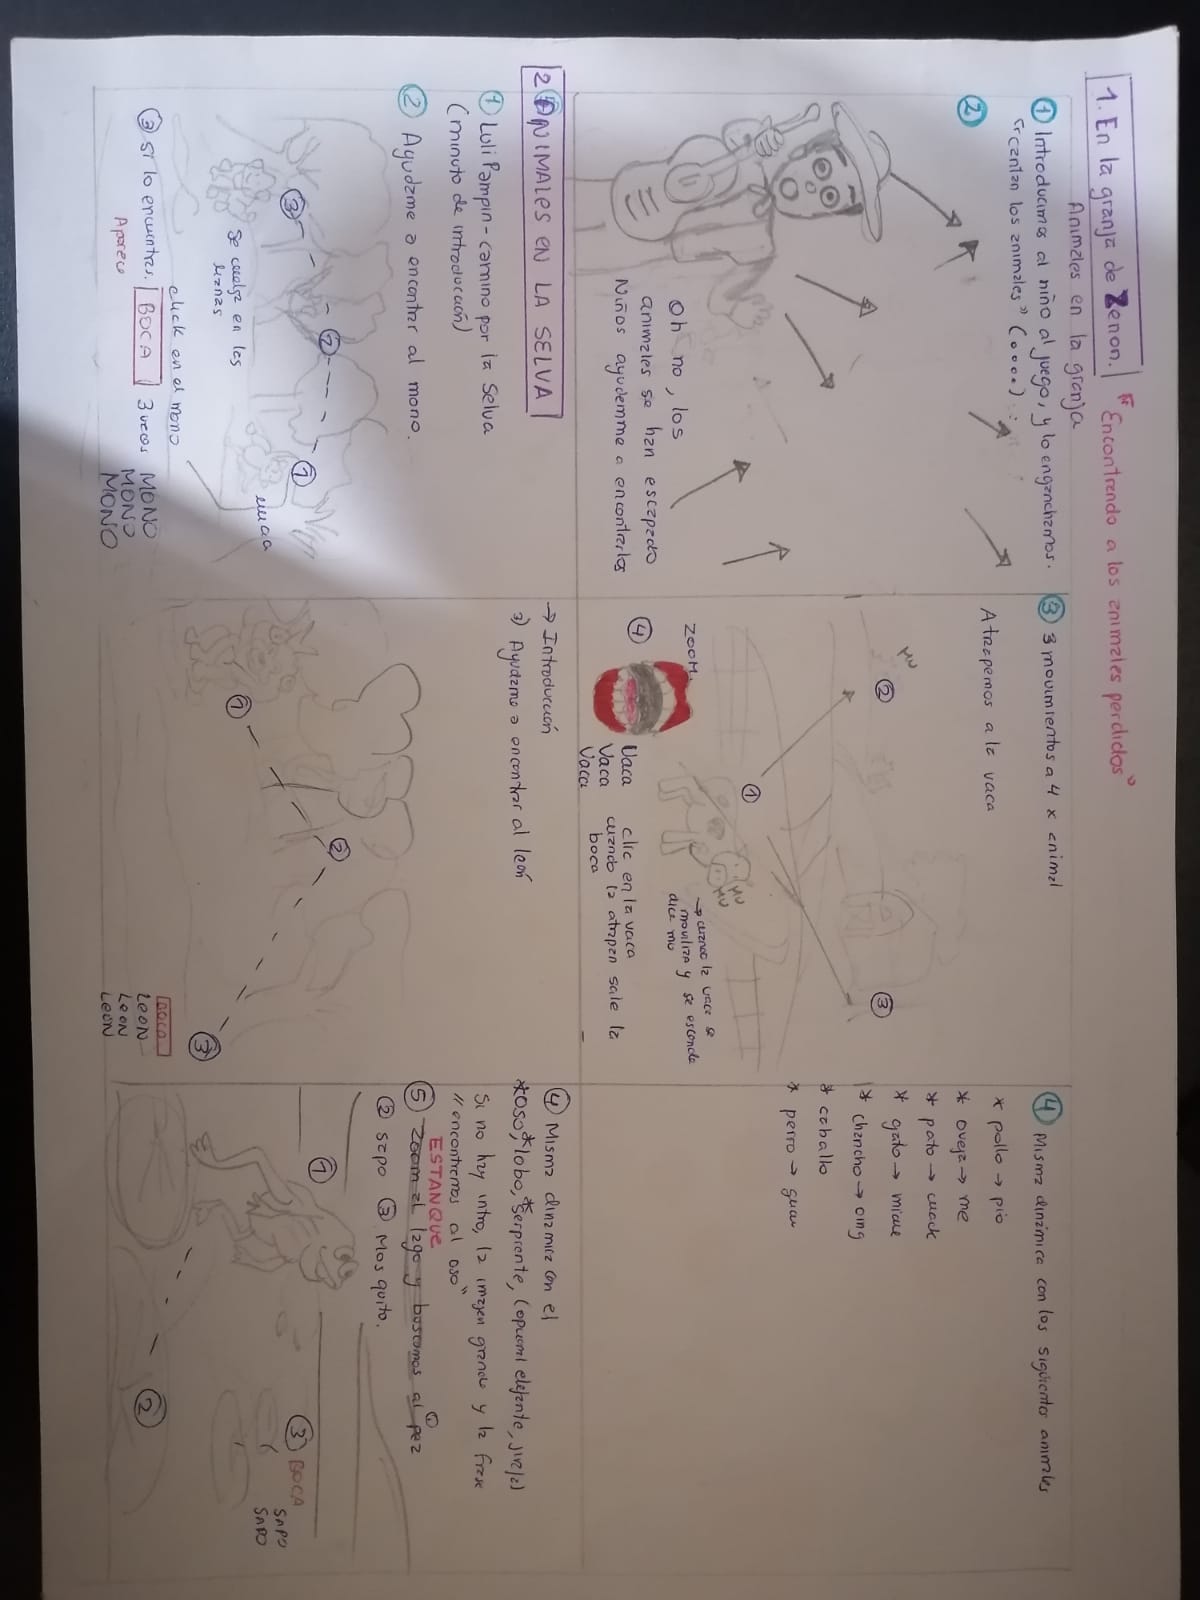 1. En la granja de Zenon.
"Encontrando a los animales perdidos"
Animales en la granja
① Introducimos al niño al juego, y lo enganchamos.
"cantan los animales" (....)
②
Oh no, los
animales se han escapado
Niños ayudemme a encontrarlos
③ 3 movimientos a 4 x animal
Atrapemos a la vaca
MU
②
①
③
MU
MU
→ cuando la vaca se
moviliza y se esconda
dice mu
ZOOM.
④
Vaca
Vaca
Vaca
clic en la vaca
cuando la atrapen sale la
boca
④ Misma dinámica con los siguientes animales
* pollo → pio
* oveja → me
* pato → cuack
* gato → miau
* chancho → oing
* caballo
* perro → guau
2. ANIMALES EN LA SELVA
① Luli Pampin - camino por la selva
(minuto de introducción)
② Ayudame a encontrar al mono.
③
②
①
uuaa
Se cuelga en las
lianas
click en el mono
③ Si lo encuentras. BOCA 3 veces MONO
Aparece
MONO
MONO
→ Introducción
3) Ayudame a encontrar al león
①
②
③
BOCA
LEON
LEON
LEON
④ Misma dinamica con el
*oso, *lobo, *serpiente, (opcional elefante, jirafa)
Si no hay intro, la imagen grande y la frase
"encontremos al oso"
ESTANQUE
⑤ Zoom al lago y buscamos al ① pez
② sapo ③ Mosquito.
①
②
③ BOCA
SAPO
SAPO